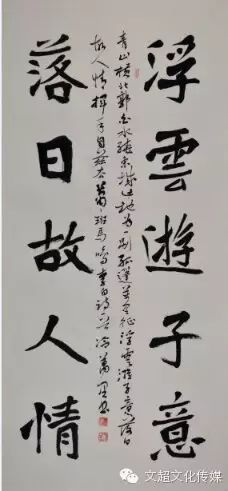 浮雲遊子意
青山橫北郭白水繞東城此地為一別孤蓬萬里征浮雲游子意落日
故人情揮手自茲去蕭〻班馬鳴李白詩
落日故人情
文超文化传媒